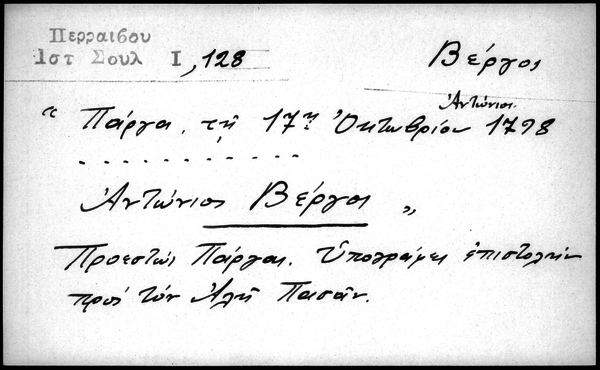 Περραιβου
Ιστ Σουλ Ι, 128
Βέργος
Ἀντώνιος.
“ Πάργα, τῇ 17ῃ Ὀκτωβρίου 1798
. . . . . . . . . . . .
Ἀντώνιος Βέργος „
Προεστώς Πάργας. Ὑπογράφει ἐπιστολήν
πρός τόν Ἀλῆ Πασᾶν.